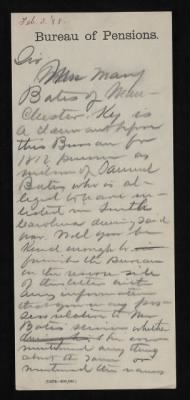 Feb. 2. 88.
Bureau of Pensions.
Sir
Mrs Mary
Bates of Man-
chester Ky is
a claimant before
this Bureau for
1812 pension as
widow of Samuel
Bates who is al-
leged to have en-
listed in South
Carolina during said
war. Will you be
kind enough to
furnish the Bureau
on the reverse side
of this letter with
any information
that you in any pos-
sess relative to Mr
Bates' service whether
he ever
mentioned any thing
about the same or
mentioned the names